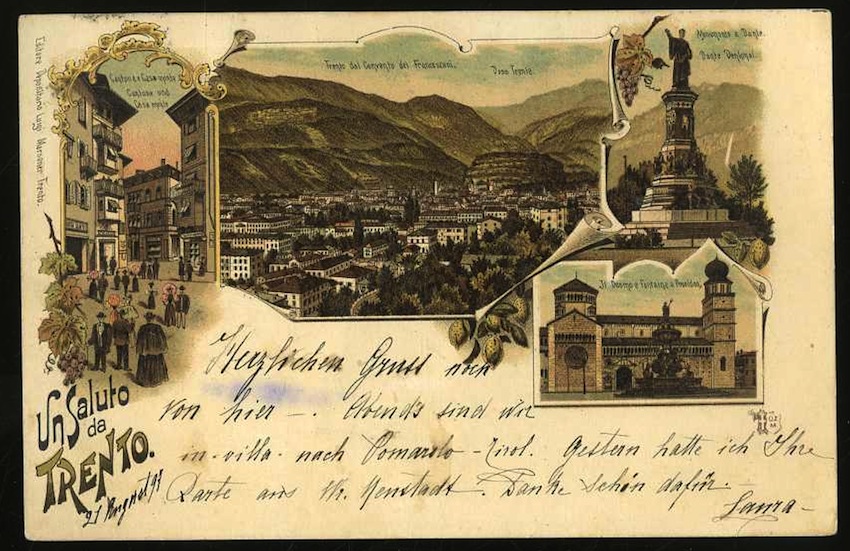 Trento dal Convento dei Francescani.
Doss Trento.
Monumento a Dante.
Dante Denkmal.
Cantone e Casa monte
Cantone und
Casa monte
Editore Luigi Trento.
Il Duomo e Fontana
Un Saluto
da
TRENTO.
21 August
Herzlichen Gruss noch
von hier –. Abends sind wir
in villa nach Pomarolo – Tirol. Gestern hatte ich Ihre
Karte aus Wr. Neustadt. Danke schön dafür.
Laura